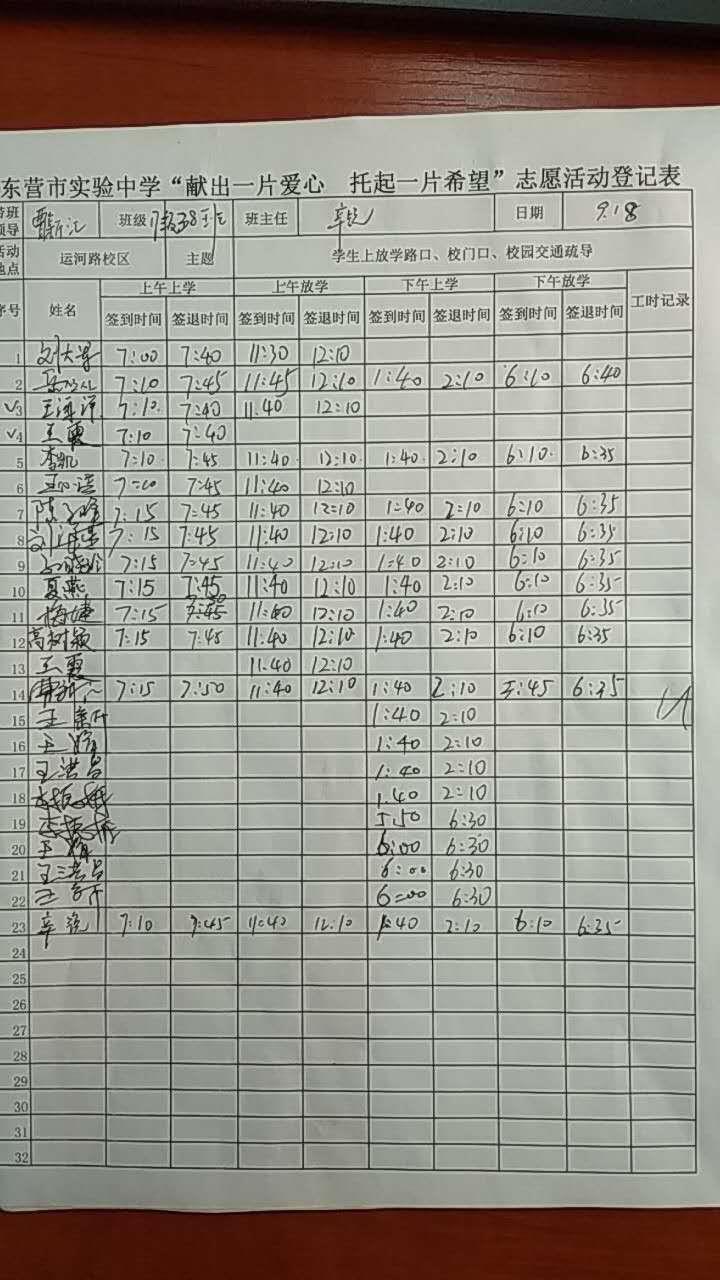 东营市实验中学“献出一片爱心 托起一片希望”志愿活动登记表
带班领导 班级 7级38班 班主任 辛锐 日期 9.18
活动地点 运河路校区 主题 学生上放学路口、校门口、校园交通疏导
序号 姓名 上午上学 上午放学 下午上学 下午放学 工时记录
签到时间 签退时间 签到时间 签退时间 签到时间 签退时间 签到时间 签退时间
1 7:00 7:40 11:30 12:10
2 7:10 7:45 11:45 12:10 1:40 2:10 6:10 6:40
√3 王海洋 7:10 7:40 11.40 12:10
√4 王夏 7:10 7:40
5 李凯 7:10 7:45 11:40 12:10 1:40 2:10 6:10 6:35
6 7:10 7:45 11:40 12:10
7 7:15 7:45 11:40 12:10 1:40 2:10 6:10 6:35
8 7:15 7:45 11:40 12:10 1:40 2:10 6:10 6:35
9 7:15 7:45 11:40 12:10 1:40 2:10 6:10 6:35
10 夏燕 7:15 7:45 11:40 12:10 1:40 2:10 6:10 6:35
11 梅婕 7:15 7:45 11:40 12:10 1:40 2:10 6:10 6:35
12 高树颖 7:15 7:45 11:40 12:10 1:40 2:10 6:10 6:35
13 王夏 11:40 12:10
14 7:15 7:50 11:40 12:10 1:40 2:10 5:45 6:35
15 1:40 2:10
16 1:40 2:10
17 王洪昌 1:40 2:10
18 1.40 2:10
19 5:50 6:30
20 6:00 6:30
21 6:00 6:30
22 6:00 6:30
23 辛锐 7:10 7:45 11:40 12:10 1:40 2:10 6:10 6:35
24
25
26
27
28
29
30
31
32